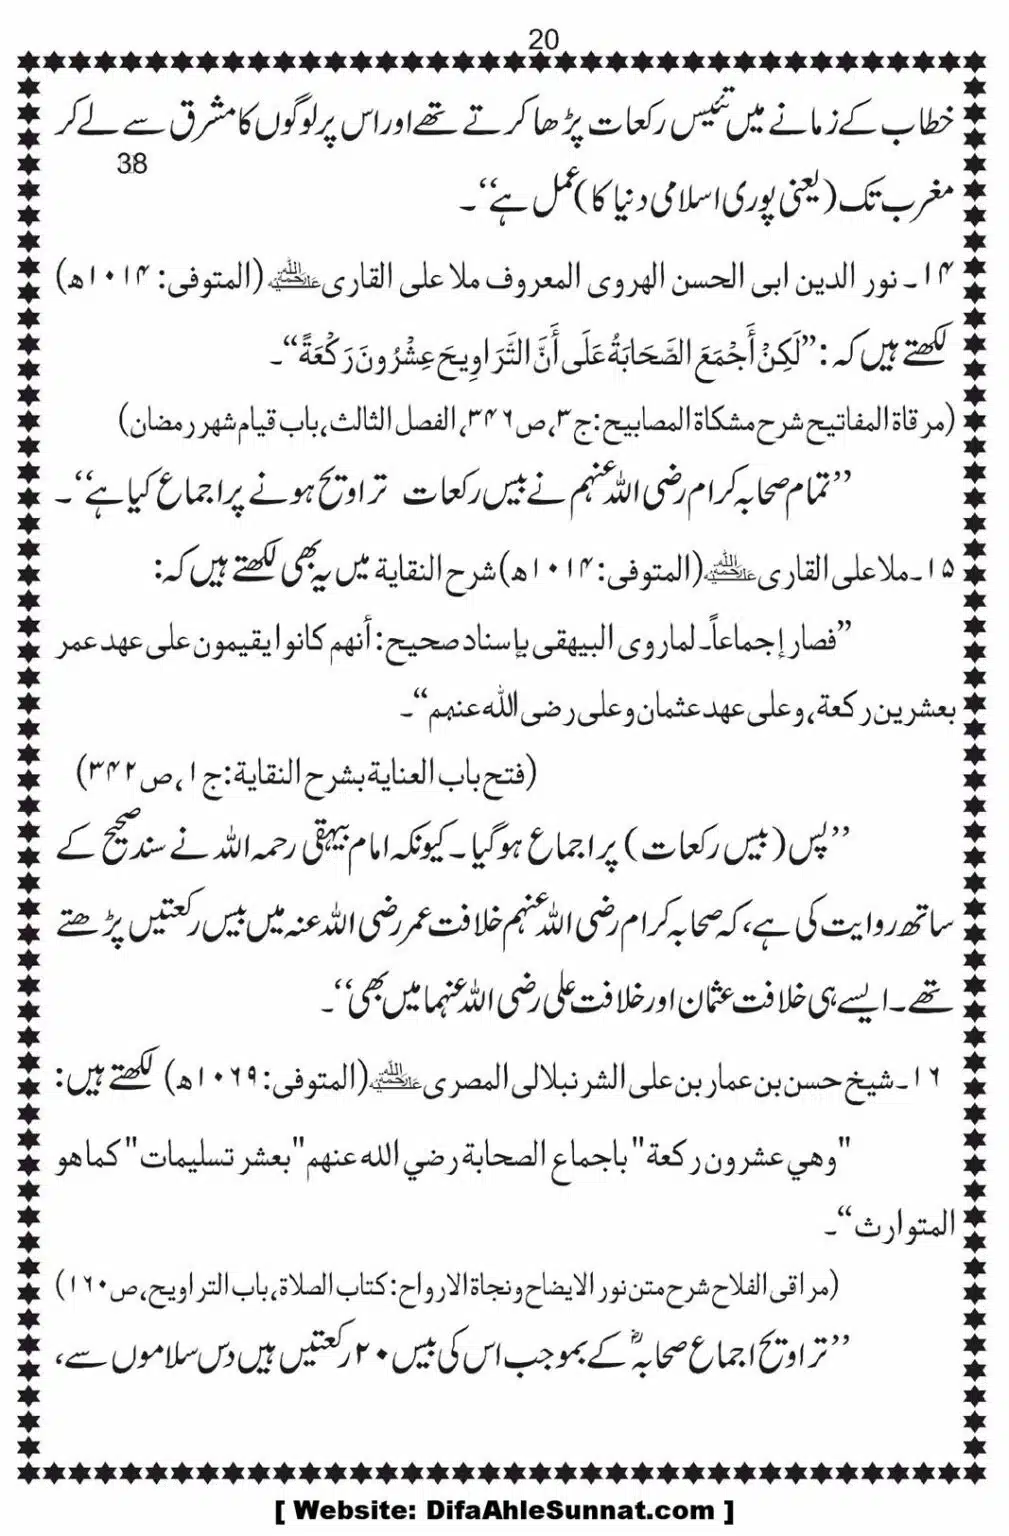 20
خطاب کے زمانے میں تئیس رکعات پڑھا کرتے تھے اور اس پر لوگوں کا مشرق سے لے کر
38
مغرب تک (یعنی پوری اسلامی دنیا کا) عمل ہے‘‘۔
۱۴۔ نور الدین ابی الحسن الھروی المعروف ملا علی القاری رحمۃ اللہ علیہ (المتوفی: ۱۰۱۴ھ)
لکھتے ہیں کہ: ’’لَكِنْ أَجْمَعَ الصَّحَابَةُ عَلَى أَنَّ التَّرَاوِيحَ عِشْرُونَ رَكْعَةً‘‘۔
(مرقاۃ المفاتیح شرح مشکاۃ المصابیح: ج۳، ص۳۴۶، الفصل الثالث، باب قیام شھر رمضان)
’’تمام صحابہ کرام رضی اللہ عنہم نے بیس رکعات تراویح ہونے پر اجماع کیا ہے‘‘۔
۱۵۔ ملا علی القاری رحمۃ اللہ علیہ (المتوفی: ۱۰۱۴ھ) شرح النقایة میں یہ بھی لکھتے ہیں کہ:
’’فصار إجماعاً۔ لما روی البیهقی بإسناد صحیح: أنهم کانوا یقیمون علی عهد عمر
بعشرین رکعة، وعلی عهد عثمان وعلی رضی اللہ عنهم‘‘۔
(فتح باب العنایة بشرح النقایة: ج۱، ص۳۴۲)
’’پس (بیس رکعات) پر اجماع ہوگیا۔ کیونکہ امام بیہقی رحمہ اللہ نے سند صحیح کے
ساتھ روایت کی ہے، کہ صحابہ کرام رضی اللہ عنہم خلافت عمر رضی اللہ عنہ میں بیس رکعتیں پڑھتے
تھے۔ ایسے ہی خلافت عثمان اور خلافت علی رضی اللہ عنہما میں بھی‘‘۔
۱۶۔ شیخ حسن بن عمار بن علی الشرنبلالی المصری رحمۃ اللہ علیہ (المتوفی: ۱۰۶۹ھ) لکھتے ہیں:
"وهي عشرون ركعة" باجماع الصحابة رضي الله عنهم "بعشر تسليمات" كما هو
المتوارث‘‘۔
(مراقی الفلاح شرح متن نور الایضاح ونجاۃ الارواح: کتاب الصلاۃ، باب التراویح، ص۱۶۰)
’’تراویح اجماع صحابہؓ کے بموجب اس کی بیس ۲۰ رکعتیں ہیں دس سلاموں سے،
[ Website: DifaAhleSunnat.com ]